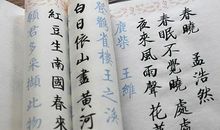 春曉 孟浩然
春眠不覺曉 處處
夜來風雨聲 花
鹿柴 王維
登鸛雀樓 王之渙
白日依山盡 黃河
紅豆生南國 春來
願君多采擷 此物